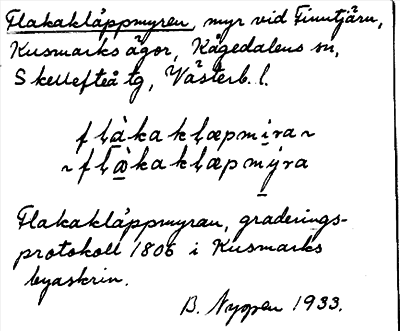 Flakakläppmyren, myr vid Finntjärn,
Kusmarks ägor, Kågedalens sn,
Skellefteå tg, Västerb. l.
fḷàkakḷæpmi̱ra ~
~ fḷæ̀kakḷæpmýra
Flakakläppmyran, graderings-
protokoll 1806 i Kusmarks
byaskrin.
B. Nygren 1933.